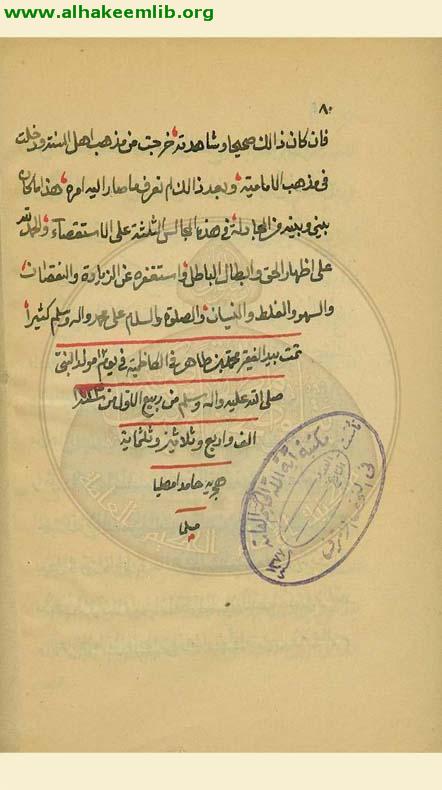 www.alhakeemlib.org
٨٠
فان كان ذالك صحيحا وشاهدته خرجت من مذهب اهل السنة ودخلت
في مذهب الامامية وبعد ذالك لم نعرف ما صار اليه امره هذا ما كان
بيني وبينه من المجادلة في هذه المجالس الثلثة على الاستقصاء والحمد لله
على اظهار الحق وابطال الباطل واستغفره عن الزيادة والنقصان
والسهو والغلط والنسيان والصلوة والسلام على محمد واله وسلم كثيرا
تمت بيد الفقير محمد بن طاهر في الكاظمية في يوم مولد النبي
صلى الله عليه واله وسلم من ربيع الاول من سنة
الف واربع وثلاثين وثلثماية
هجرية حامدا مصليا
مسلما
مكتبة آية الله الحكيم العامة
في النجف الاشرف
سنة ١٣٧٧